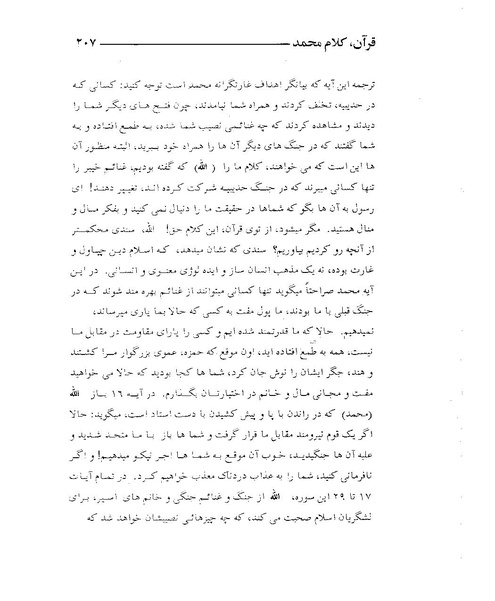 قرآن، کلام محمد ـــــــــــــــــــــــــــــــ ۲۰۷
ترجمه این آیه که بیانگر اهداف غارتگرانه محمد است توجه کنید: کسانی که
در حدیبیه، تخلف کردند و همراه شما نیامدند، چون فتح های دیگر شما را
دیدند و مشاهده کردند که چه غنائمی نصیب شما شده، به طمع افتاده و به
شما گفتند که در جنگ های دیگر آن ها را همراه خود ببرید، البته منظور آن
ها این است که می خواهند، کلام ما را (الله) که گفته بودیم، غنائم خیبر را
تنها کسانی میبرند که در جنگ حدیبیه شرکت کرده اند، تغییر دهند! ای
رسول به آن ها بگو که شماها در حقیقت ما را دنبال نمی کنید و بفکر مال و
منال هستید. مگر میشود، از توی قرآن، این کلام حق! الله، سندی محکمتر
از آنچه رو کردیم بیاوریم؟ سندی که نشان میدهد، که اسلام دین چپاول و
غارت بوده، نه یک مذهب انسان ساز و ایده لوژی معنوی و انسانی. در این
آیه محمد صراحتاً میگوید تنها کسانی میتوانند از غنائم بهره مند شوند که در
جنگ قبلی با ما بودند، ما پول مفت به کسی که حالا بما یاری میرساند،
نمیدهیم. حالا که ما قدرتمند شده ایم و کسی را یارای مقاومت در مقابل ما
نیست، همه به طمع افتاده اید، اون موقع که حمزه، عموی بزرگوار مرا کشتند
و هند، جگر ایشان را نوش جان کرد، شما ها کجا بودید که حالا می خواهید
مفت و مجانی مال و خانم در اختیارتان بگذارم. در آیه ۱۶ باز الله
(محمد) که در راندن با پا و پیش کشیدن با دست استاد است، میگوید: حالا
اگر یک قوم نیرومند مقابل ما قرار گرفت و شما ها باز با ما متحد شدید و
علیه آن ها جنگیدید، خوب آن موقع به شما ها اجر نیکو میدهیم! و اگر
نافرمانی کنید، شما را به عذاب دردناک معذب خواهیم کرد. در تمام آیات
۱۷ تا ۲۹ این سوره، الله از جنگ و غنائم جنگی و خانم های اسیر، برای
لشگریان اسلام صحبت می کند، که چه چیزهائی نصیبشان خواهد شد که